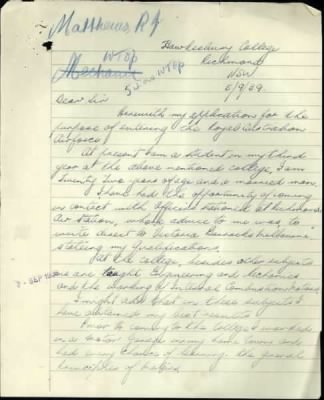 Matthews, R J
Hawkesbury College
WTOP
Richmond
Mechanic
5 Jan WTOP
NSW
6/9/39.
Dear Sir
Herewith my application for the
purpose of entering the Royal Australian
Airforce.
At present I am a student in my third
year at the above mentioned college, I am
twenty two years of age and a married man.
I have had the opportunity of coming
in contact with Official Personnel at Richmond
Air Station, whose advice to me was, to
write direct to Victoria Barracks Melbourne
stating my qualifications.
At the College, besides other subjects
we are taught Engineering and Mechanics
- SEP 1939
and the working of Internal Combustion Motors
I might add that in these subjects I
have obtained my best results.
Prior to coming to the College I worked
in a Motor Garage in my home town and
had every chance of learning the general
principles of